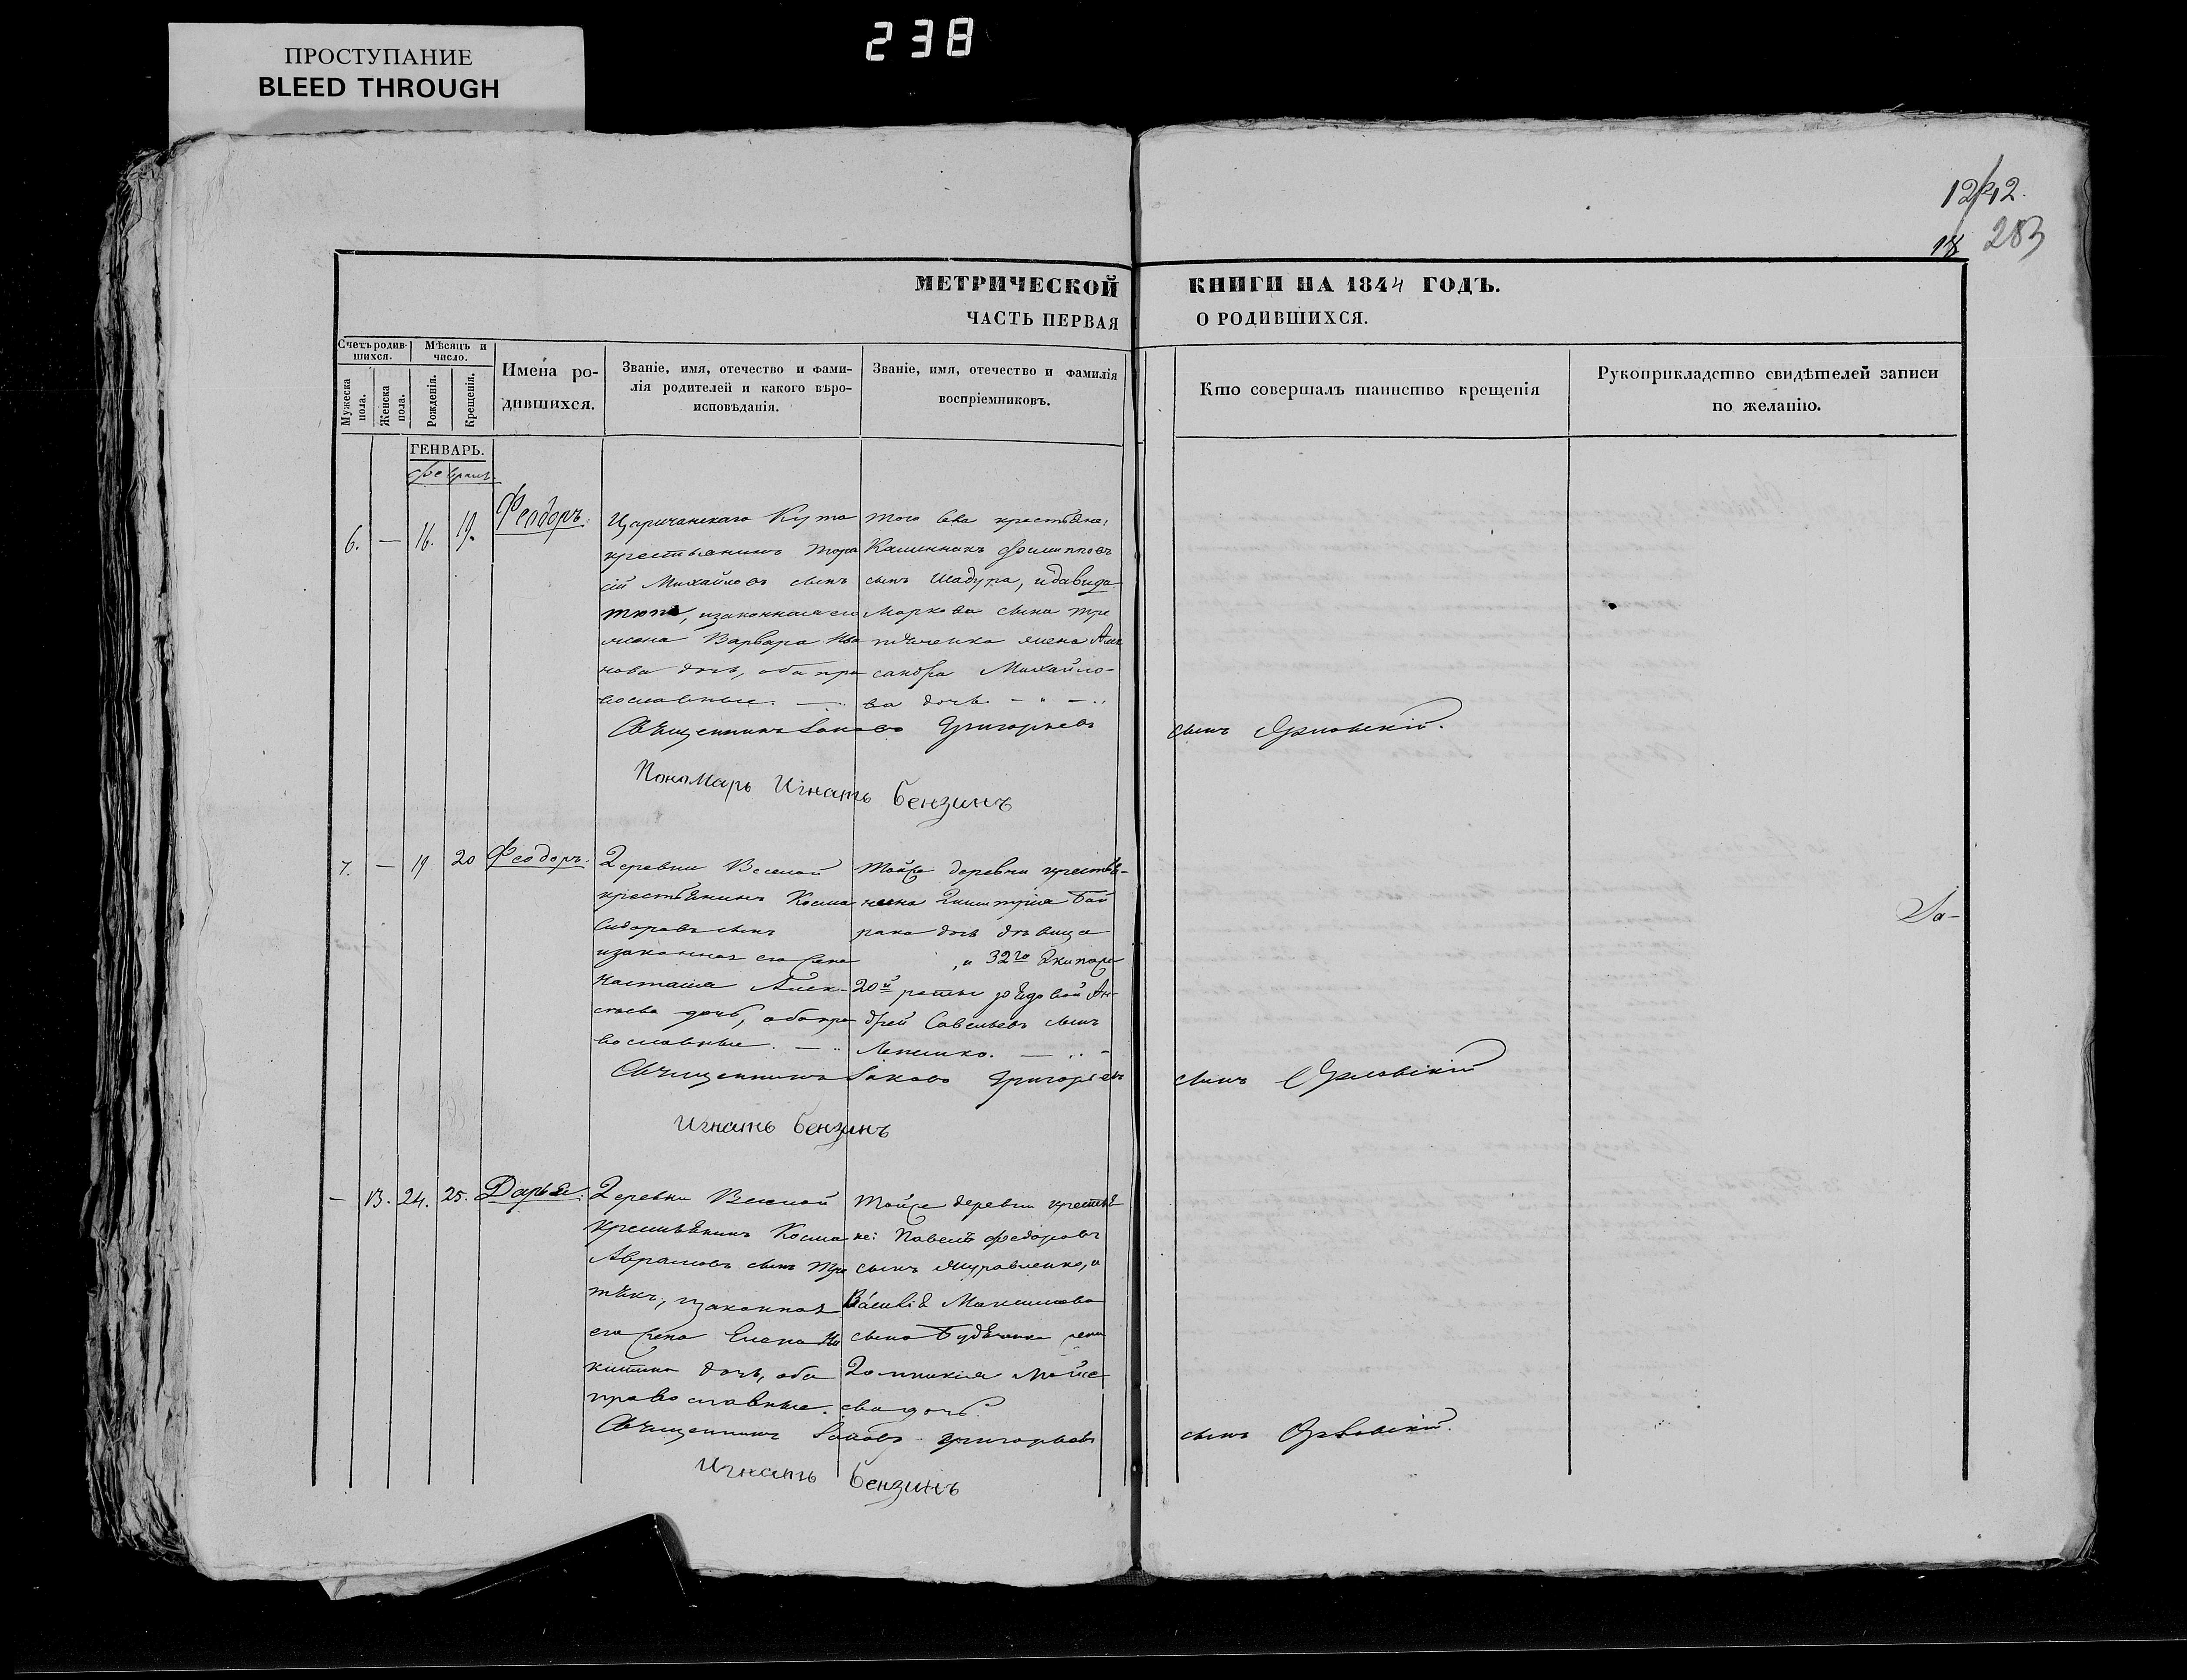 ПРОСТУПАНИЕ
BLEED THROUGH
238
12/42.
18 283
МЕТРИЧЕСКОЙ КНИГИ НА 1844 ГОДЪ.
ЧАСТЬ ПЕРВАЯ О РОДИВШИХСЯ.
Счетъ родив-
шихся.
Мужеска пола.
Женска пола.
Мѣсяцъ и
число.
Рожденія.
Крещенія.
Имена ро-
дившихся.
Званіе, имя, отечество и фами-
лія родителей и какого вѣро-
исповѣданія.
Званіе, имя, отечество и фамилія
воспріемниковъ.
Кто совершалъ таинство крещенія
Рукоприкладство свидѣтелей записи
по желанію.
ГЕНВАРЬ.
февраль
6. — 16. 19. Феодоръ.
Царичанскаго Кута
крестьянинъ
сій Михайловъ сынъ
законная его
жена Варвара Ива
нова дочь, оба пра
вославные.
того
Филипповъ
сынъ Шадура, и Давида
Маркова сына Тре
тяченка жена Алек
сандра Михайло-
ва дочь.
Священникъ Іаковъ Григорьевъ сынъ Орловскій.
Пономарь Игнатъ Бензинъ
7. — 19 20 Феодоръ.
Деревни Веселой
крестьянинъ Косма
Сидоровъ сынъ
и законная его жена
Настасія Алек-
сѣева дочь, оба пра
вославные.
Тойже деревни крестья-
нина Димитрія Бай
рака дочь дѣвица
и 32го Экипажа
20й роты ѣздовой Ан-
дрей Савельевъ сынъ
Священникъ Іаковъ Григорьевъ сынъ Орловскій
Игнатъ Бензинъ
За-
— 13. 24. 25. Дарья.
Деревни Веселой
крестьянинъ Косма
Аврамовъ сынъ Тре
тякъ, и законная
его жена Елена Ни
китина дочь, оба
православные.
Тойже деревни крестья
не: Павелъ Федоровъ
сынъ Журавленко, и
Василія Максимова
сына Будянка жена
Домникія Мойсе
ева дочь.
Священникъ Іаковъ Григорьевъ сынъ Орловскій.
Игнатъ Бензинъ